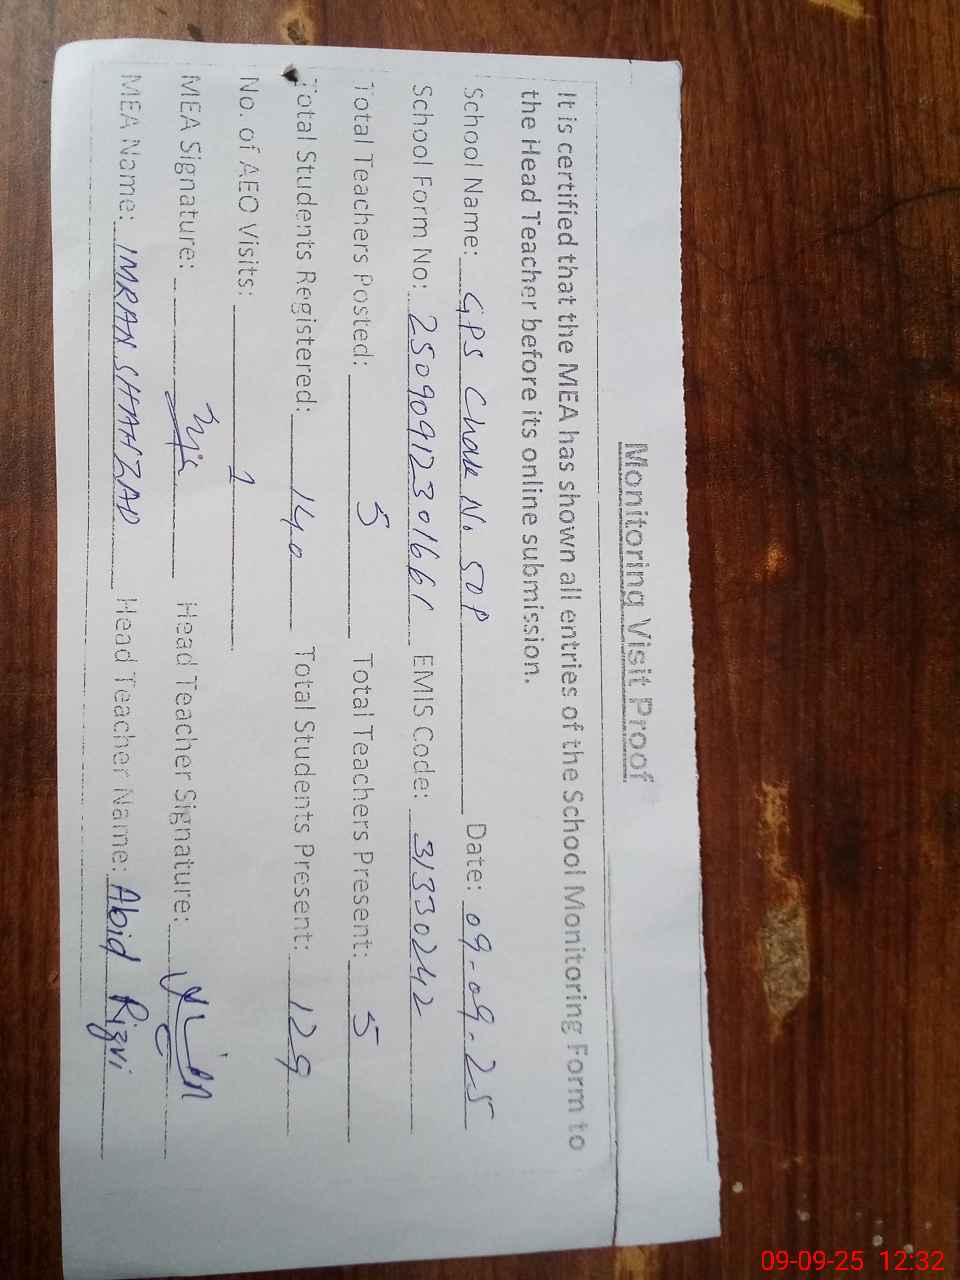 Monitoring Visit Proof
It is certified that the MEA has shown all entries of the School Monitoring Form to
the Head Teacher before its online submission.
School Name: GPS Chak No 50P Date: 09-09-25
School Form No: EMIS Code: 31330242
Total Teachers Posted: 5 Total Teachers Present: 5
Total Students Registered: 140 Total Students Present: 129
No. of AEO Visits: 1
MEA Signature: Head Teacher Signature:
MEA Name: IMRAN SHAHZAD Head Teacher Name: Abid Rizvi
09-09-25 12:32